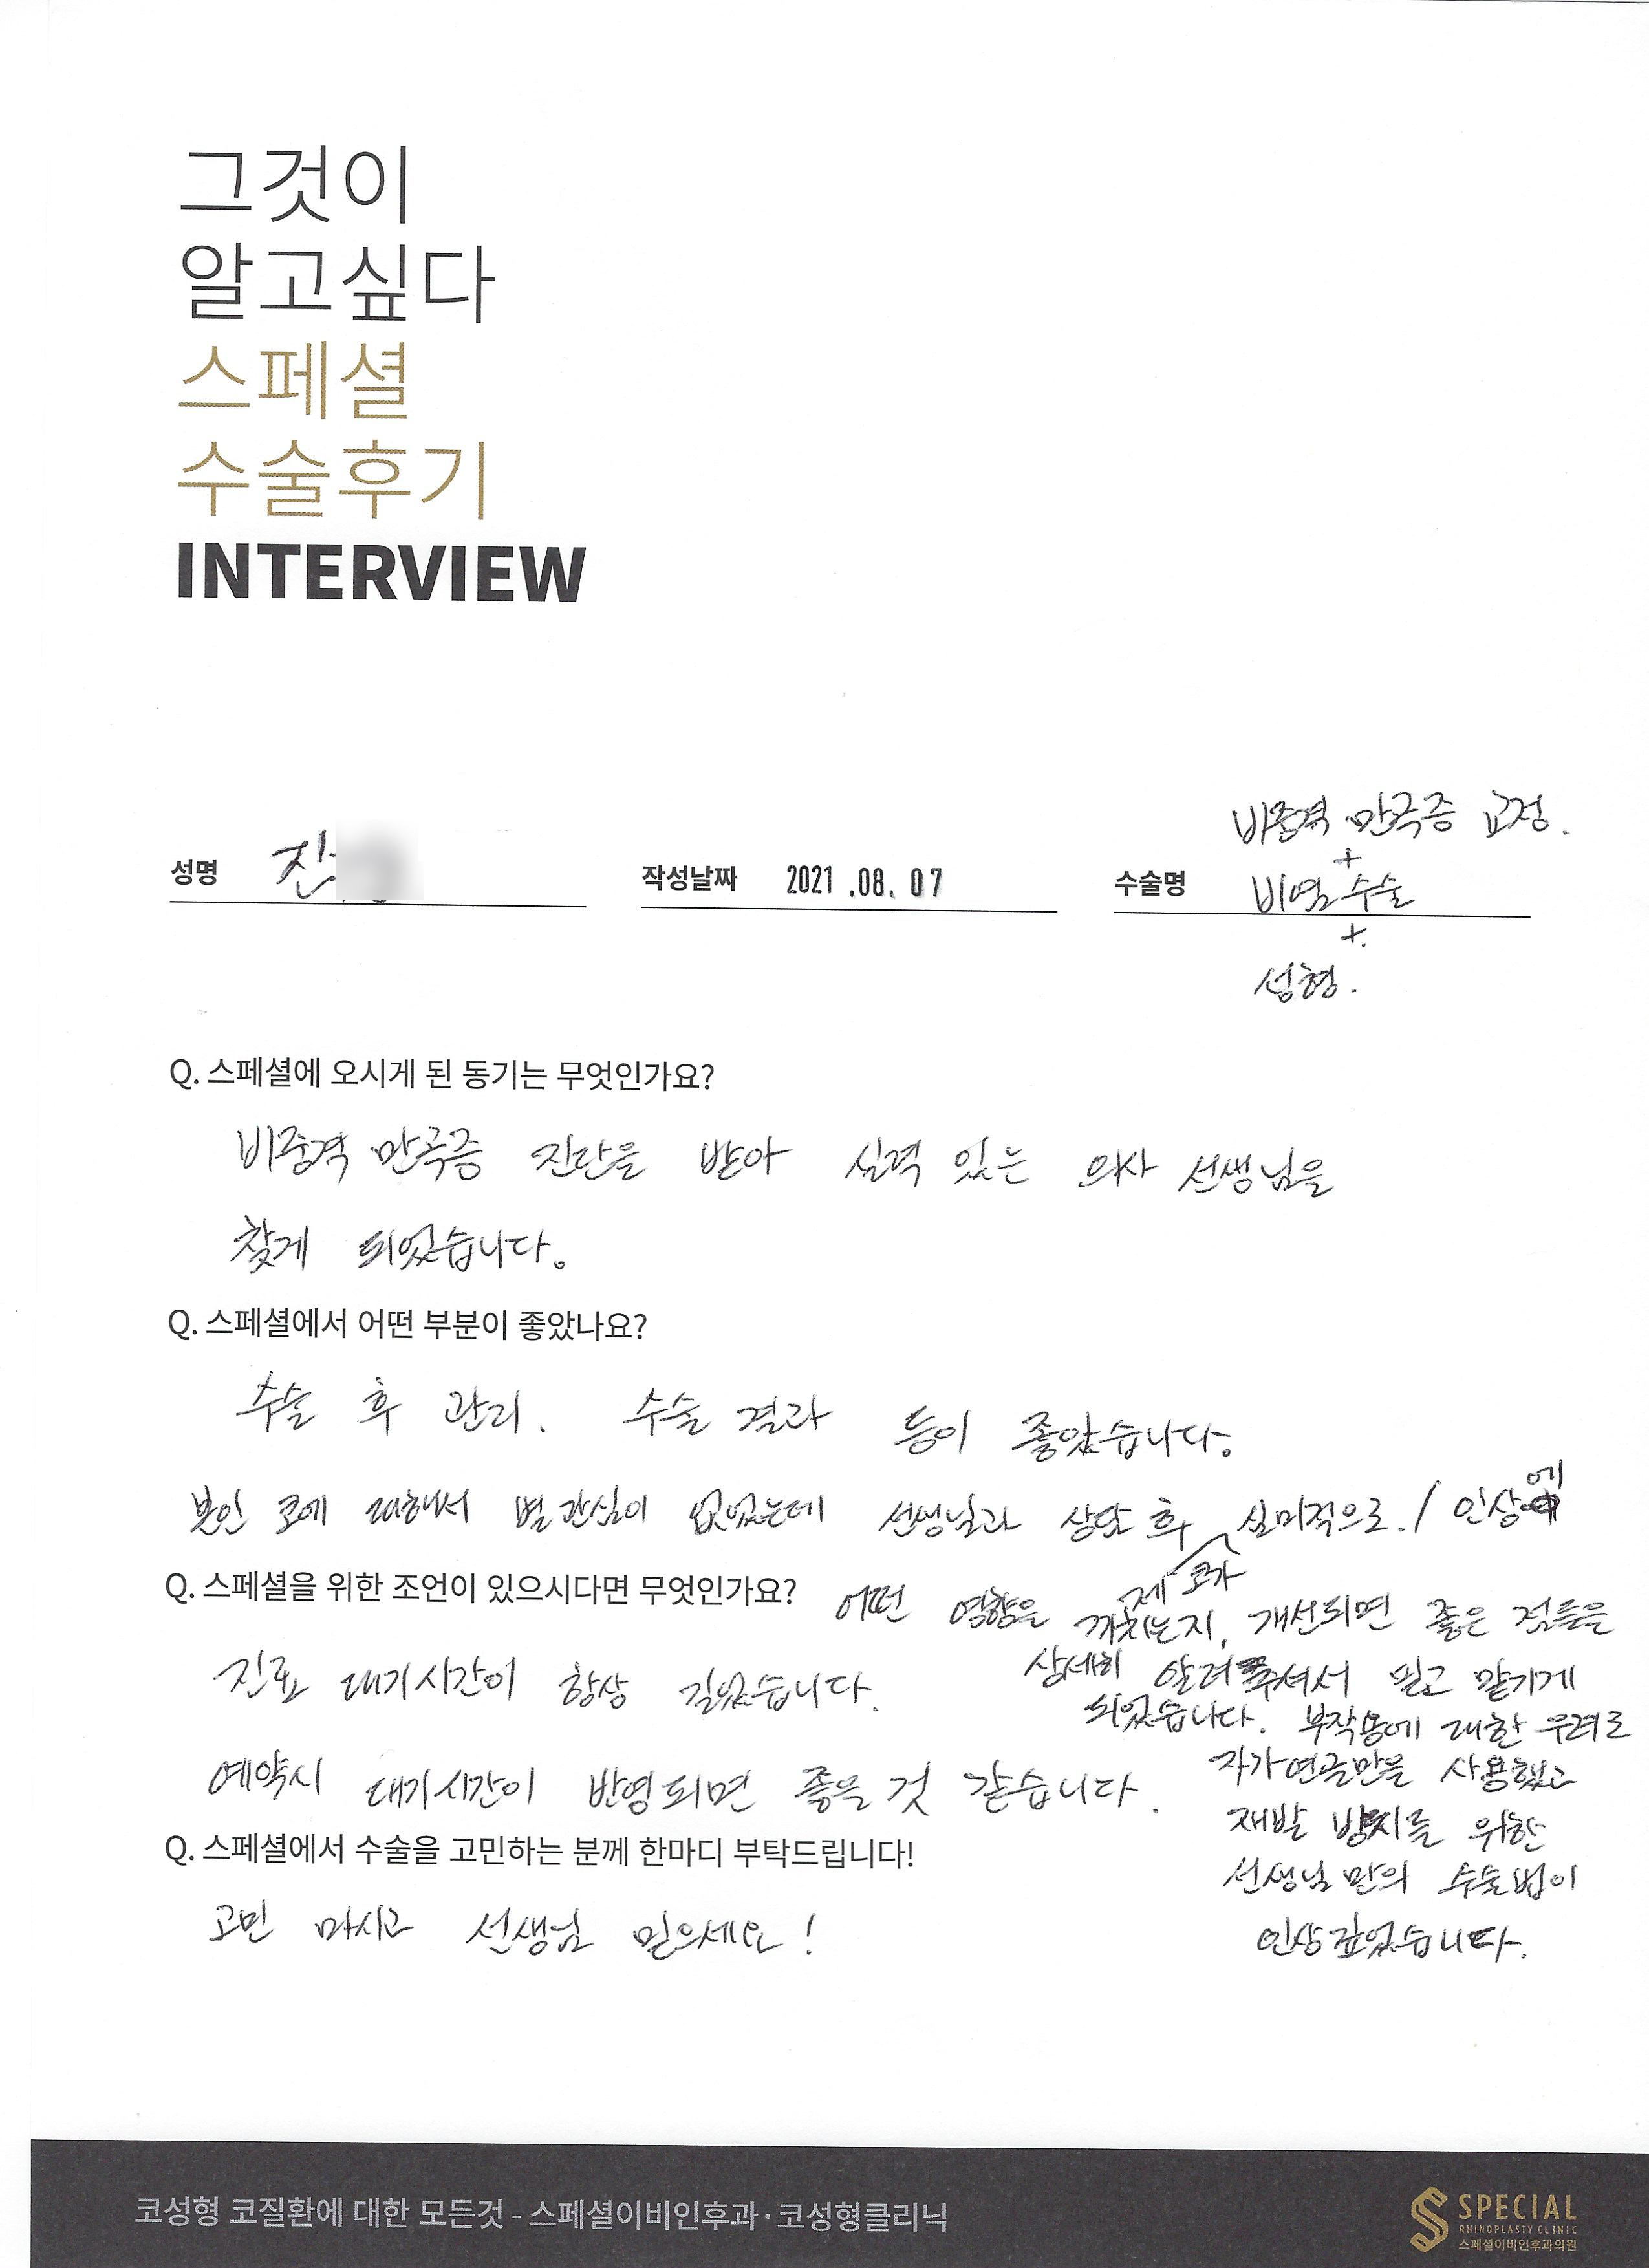 그것이
알고싶다
스페셜
수술후기
INTERVIEW
성명 진
작성날짜 2021.08.07
수술명 비중격 만곡증 교정.
+
비염 수술
+
성형.
Q. 스페셜에 오시게 된 동기는 무엇인가요?
비중격 만곡증 진단을 받아 실력 있는 의사 선생님을
찾게 되었습니다.
Q. 스페셜에서 어떤 부분이 좋았나요?
수술 후 관리. 수술 결과 등이 좋았습니다.
본인 코에 대해서 별 관심이 없었는데 선생님과 상담 후 제 코가 심미적으로./ 인상에
어떤 영향을 끼치는지, 개선되면 좋은 점들을
상세히 알려주셔서 믿고 맡기게
되었습니다. 부작용에 대한 우려로
자가연골만을 사용했고
재발 방지를 위한
선생님 만의 수술법이
인상깊었습니다.
Q. 스페셜을 위한 조언이 있으시다면 무엇인가요?
진료 대기시간이 항상 길었습니다.
예약시 대기시간이 반영되면 좋을 것 같습니다.
Q. 스페셜에서 수술을 고민하는 분께 한마디 부탁드립니다!
고민 마시고 선생님 믿으세요!
코성형 코질환에 대한 모든것 - 스페셜이비인후과·코성형클리닉
SPECIAL
RHINOPLASTY CLINIC
스페셜이비인후과의원